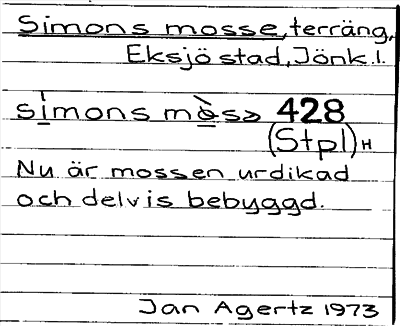 Simons mosse, terräng,
Eksjö stad, Jönk. l.
simons mòsə 428
(Stpl) H
Nu är mossen urdikad
och delvis bebyggd.
Jan Agertz 1973